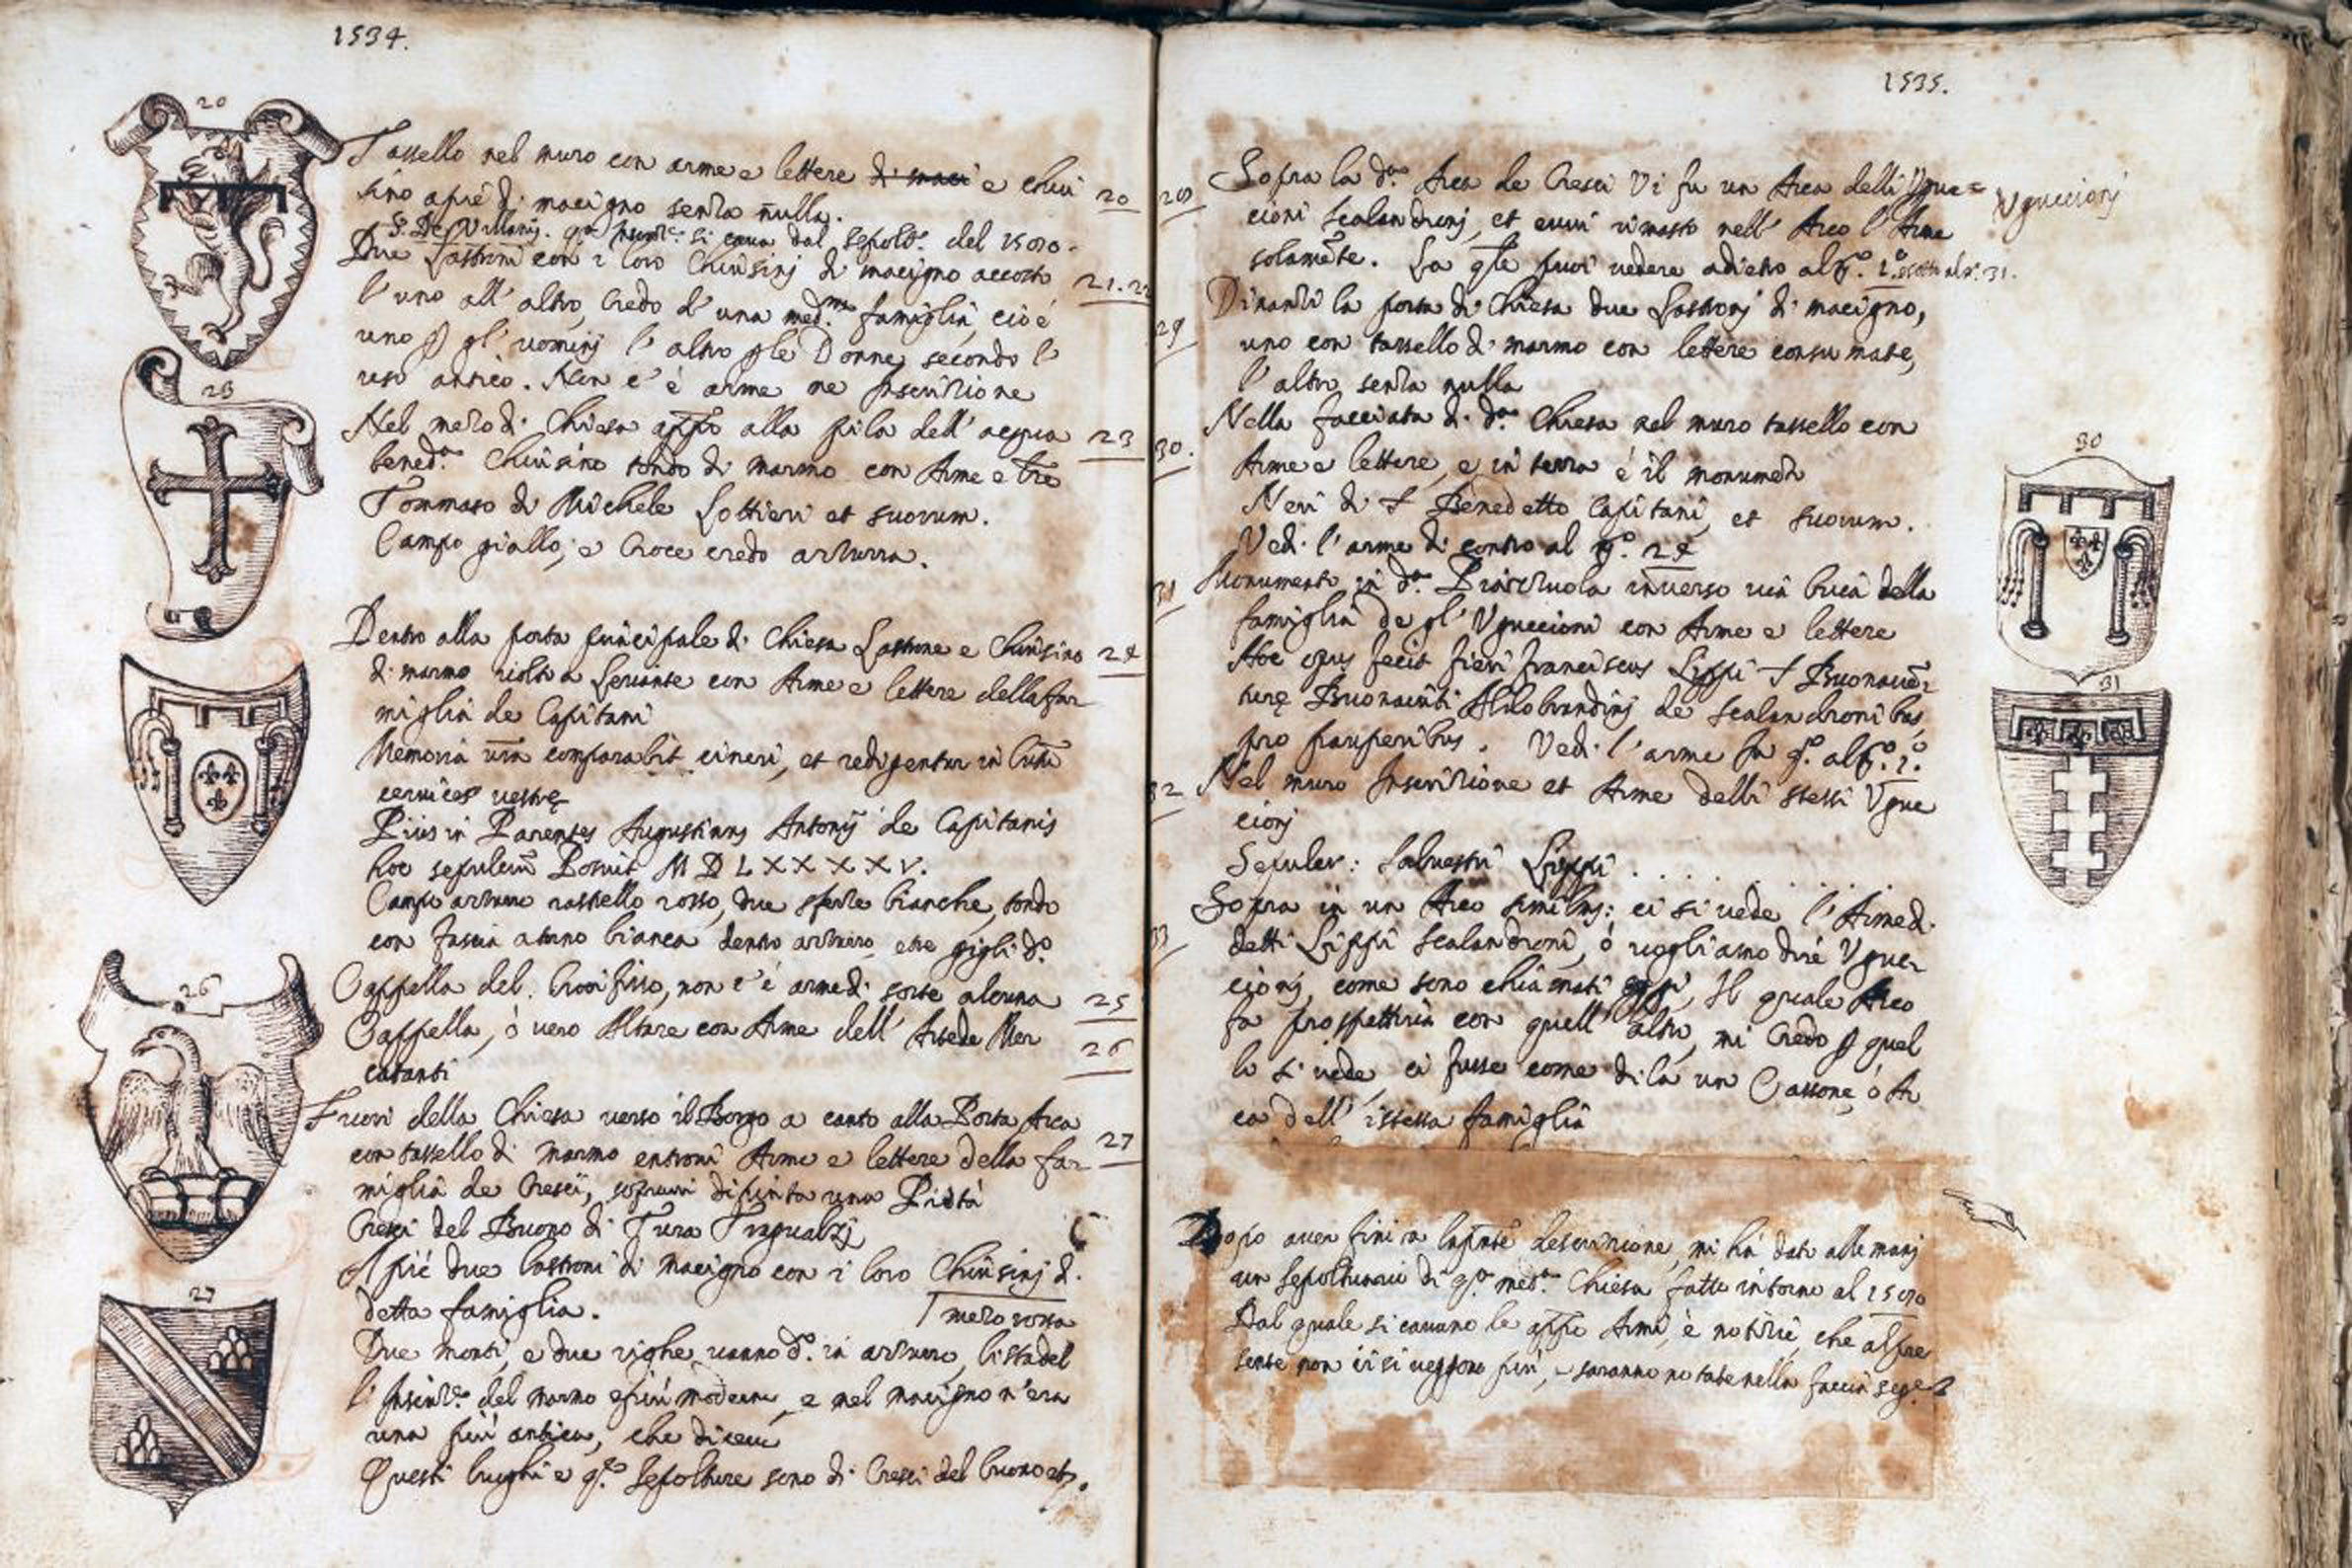 1534.
20
Tassello nel muro con arme e lettere di maci e chiu
sino apiè di macigno senza nulla.
20
S. De Villanis. si cava dal sepolt.º del 1500.
Due Lastroni con i loro Chiusinj di macigno accosto
21.22
l'uno all'altro, Credo d'una med.ma famiglia, cioè
uno gl'uominj l'altro Donne, secondo l'
uso antico. Non c'è arme ne Inscrizione
23
Nel mezo di Chiesa app̃o alla pila dell'acqua
23
bened.ª Chiusino tondo di marmo con Arme e lr̃e
Tommaso di Michele Lottieri et suorum.
Campo giallo, e Croce credo azzurra.
Dentro alla porta principale di Chiesa Lastrone e Chiusino
24
di marmo volto a Levante con Arme e lettere della fa=
miglia de Capitani
Memoria vr̃a comparabit cineri, et redigentur in
cervices vestrę
Pius in Parentes Augustinus Antonij de Capitanis
hoc sepulcrũ Posuit M D L X X X X V.
Campo azzurro rastello rosso, due sferze bianche, tondo
con fascia atorno bianca dentro azzurro, tre gigli d'º
Cappella del Crocifisso, non c'è arme di sorte alcuna
25
26
Cappella, ò vero Altare con Arme dell'Arte de Mer
26
catanti
Fuori della Chiesa verso il Borgo a canto alla Porta Arca
27
con tassello di marmo entrovi Arme e lettere della fa=
miglia de Cresci, sopravi dipinta una Pietà
Cresci del Buono di Tura
A piè due lastroni di macigno con i loro Chiusinj d.
detta famiglia.
mezo rossa
27
Due monti, e due righe vanno d'º. in azzurro, lista del
l'Inscriz.e del marmo è più moderna, e nel macigno n'era
una più antica, che diceva
Questi luoghi e q.te Sepolture sono di Cresci del buono et
1535.
28
Sopra la d.ª Arca de Cresci Vi fu un Arca delli Ugue=
Uguccionj
cioni Scalandronj, et evvi rimasto nell'Arco l'Arme
solamẽte. La q̃le puoi vedere adietro al nº. 1.º e sotto al nº. 31.
Dinanzi la porta di Chiesa due Lastronj di macigno,
29
uno con tassello di marmo con lettere consumate,
l'altro senza nulla
Nella facciata di d.ª Chiesa nel muro tassello con
30.
Arme e lettere, e in terra è il monumẽto
Neri di S Benedetto Capitani et suorum.
Vedi l'arme di contro al nº. 24
30
31
Monumento in d.ª Piazzuola inverso via buia della
famiglia de gl'Uguccioni con Arme e lettere
Hoc opus fecit fieri Franciscus Lippi S Buonavẽ=
turę Buonacinti Aldobrandinj de Scalandronibus
pro pauperibus. Vedi l'arme al nº. 1.º
31
32
Nel muro Inscrizione et Arme delli stessi Ugue
cionj
Sepulcr: Salvestri Lippi . . . . .
33
Sopra in un Arco similmẽ: ci si vede l'Arme d.
detti Lippi Scalandroni, ò vogliamo dire Uguc=
cionj, come sono chiamati oggi, Il quale Arco
fa prospettiva con quell'altro, mi Credo quel
lo si vede, ci fusse come di là un Cassone, ò Ar
ca dell'istessa famiglia
Dopo aver finita la pñte descrizione, mi hà dato alle manj
un Sepoltuario di q.ª med.ª Chiesa fatto intorno al 1500
Dal quale si cavano le app̃e Armi, e notizie, che al pre
sente non vi si veggono più, e saranno notate nella faccia